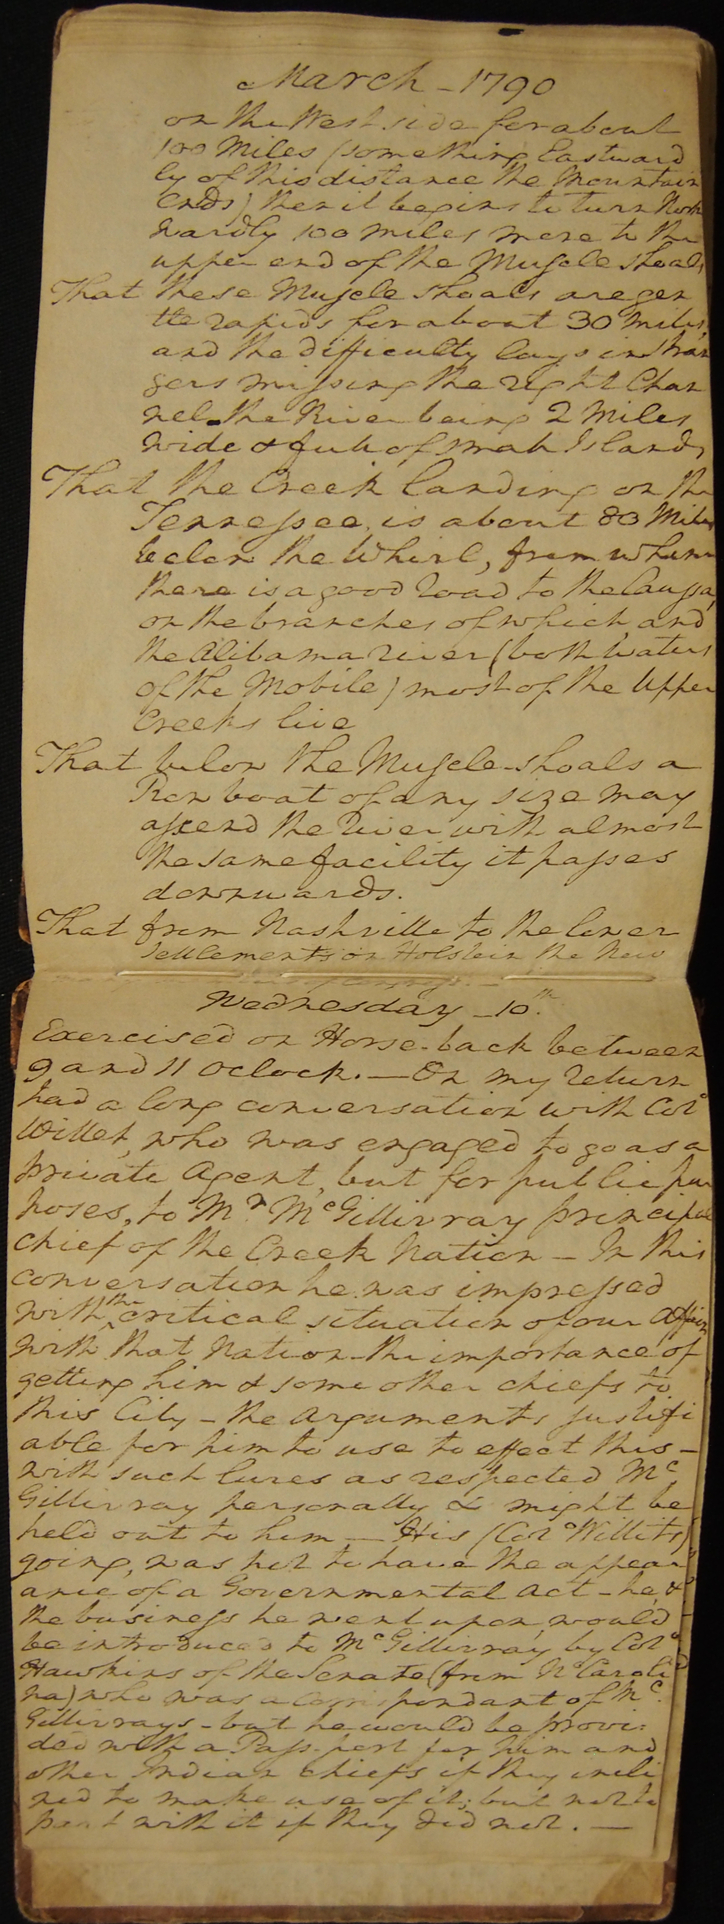 March - 1790
on the West side for about
100 Miles (something Eastward
ly of this distance the Mountain
ends) then it begins to turn North
wardly 100 miles more to the
upper end of the Muscle shoals
That these Muscle shoals are gen
tle rapids for about 30 miles,
and the difficulty lays in stran
gers missing the right Chan
nel the River being 2 Miles
wide & full of small Islands
That the Creek landing on the
Tennessee, is about 80 Miles
below the Whirl, from whence
there is a good road to the Caussa,
on the branches of which and
the Alibama river (both waters
of the Mobile) most of the Upper
Creeks live
That below the Muscle-shoals a
Row boat of any size may
ascend the river with almost
the same facility it passes
downwards.
That from Nashville to the lower
settlements on Holstein the New
Wednesday - 10th.
Exercised on Horse-back between
9 and 11 Oclock. — On my return
had a long conversation with Colo
Willet, who was engaged to go as a
private Agent, but for public pur
poses, to Mr. McGillivray principal
chief of the Creek Nation — In this
conversation he was impressed
with the critical situation of our Affairs
with that Nation - the importance of
getting him & some other chiefs to
this City - the arguments justifi
able for him to use to effect this -
with such lures as respected Mc
Gillivray personally & might be
held out to him — His (Colo Willets)
going, was not to have the appear
ance of a Governmental act - he, &
the business he went upon, would
be introduced to McGillivray by Colo
Hawkins of the Senate (from No Caroli
na) who was a Correspondant of Mc.
Gillivrays - but he would be provi:
ded with a Pass-port for him and
other Indian Chiefs if they incli
ned to make use of it; but not to
part with it if they did not. —